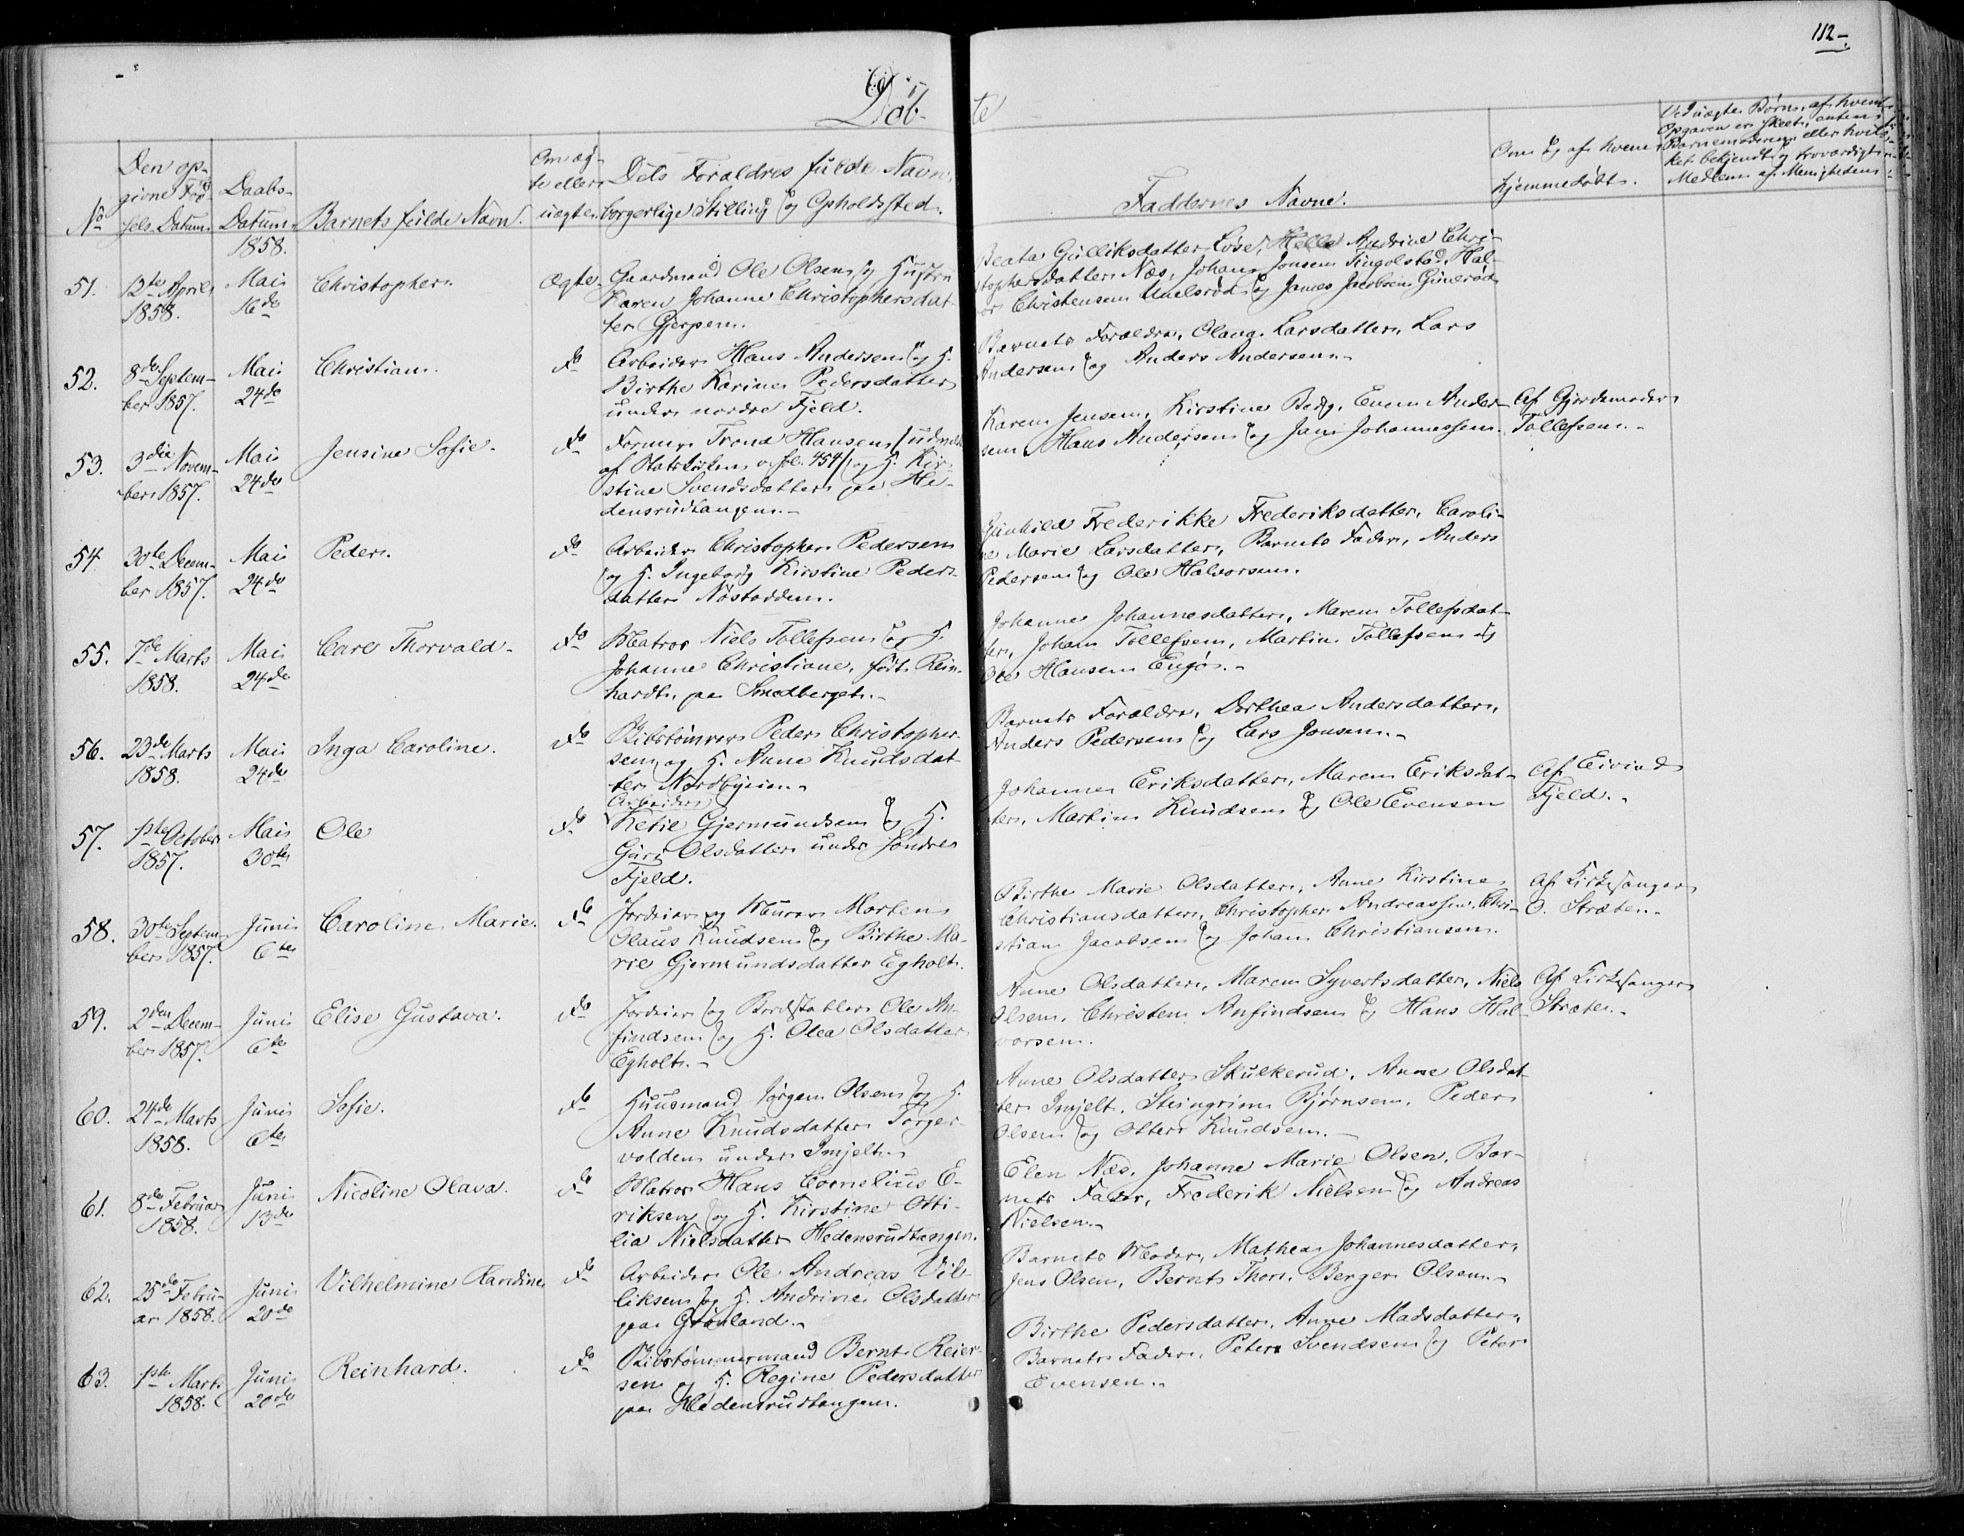 112-
Døbte
No
Den opgivne Fødsels Datum.
Daabs-Datum.
Barnets fulde Navn.
Om ægte eller uægte.
Dets Forældres fulde Navn, borgerlige Stilling og Opholdssted.
Faddernes Navne.
Om og af hvem hjemmedøbt.
Ved uægte Børn, af hvem Opgaven er skeet, enten Barnemoderen eller hvilket bekjendt og troværdigt Medlem af Menigheden
1858.
51. 12te April 1858. Mai 16de Christopher. Ægte.
Gaardmand Ole Olsen og Hustru
Karen Johanne Christophersdat-
ter Gjerpen.
Beata Gulliksdatter Løse, Helle Andrine Chri-
stophersdatter Næs, Johan Jonsen Tingolstad, Hal-
vor Christensen Unelsrød og James Jacobsen Ginerød
52. 8de September 1857. Mai 24de Christian. do
Arbeider Hans Andersen og H.
Birthe Karine Pedersdatter
under nordre Fjeld.
Barnets Forældre, Olaug Larsdatter, Lars
Andersen og Anders Andersen.-
53. 3die November 1857. Mai 24de Jensine Sofie. do
Former Trond Hansen (udmeldt
af Statskirken v. fol. 454) og H. Kir-
stine Svendsdatter paa He-
densrudtangen.-
Karen Jensen, Kirstine Berg, Even Ander-
sen, Hans Andersen og Jans Johannessen.
Af Gjordemoder
Tollefsen.-
54. 30te December 1857. Mai 24de Peder. do
Arbeider Christopher Pedersen
og H. Ingeborg Kirstine Peders-
datter Nøstodden.
Gunhild Frederikke Frederiksdatter, Caroli-
ne Marie Larsdatter, Barnets Fader, Anders
Pedersen og Ole Halvorsen.
55. 7de Marts 1858. Mai 24de Carl Thorvald- do
Matros Niels Tollefsen og H.
Johanne Christiane, født Rein-
hardt, paa Smedberget.-
Johanne Johannesdatter, Maren Tollefsdat-
ter, Johan Tollefsen, Martin Tollefsen og
Ole Hansen Engø.-
56. 23de Marts 1858. Mai 24de Inga Caroline. do
Skibstømrer Peder Christopher-
sen og H. Anne Knudsdat-
ter Nordbyeien.
Barnets Forældre, Dorthea Andersdatter,
Anders Pedersen og Lars Jensen.-
57. 1ste October 1857. Mai 30te Ole do
Arbeider
Ketil Gjermundsen og H.
Guri Olsdatter under søndre
Fjeld.
Johanne Eriksdatter, Maren Eriksdat-
ter, Martin Knudsen og Ole Evensen
Af Eivind
Fjeld.-
58. 30te September 1857. Juni 6te Caroline Marie. do
Jordeier og Murer Morten
Olaus Knudsen og Birthe Ma-
rie Gjermundsdatter Egholt.
Birthe Marie Olsdatter, Anne Kirstine
Christiansdatter, Christopher Andreassen, Chri-
stian Jacobsen og Johan Christiansen.
Af Kirkesanger
O. Stræte.-
59. 2den December 1857. Juni 6te Elise Gustava. do
Jordeier og Bordstabler Ole An-
findsen og H. Olea Olsdatter
Egholt.-
Anne Olsdatter, Maren Syvertsdatter, Niels
Olsen, Christen Anfindsen og Hans Hal-
vorsen.
Af Kirkesanger
Stræte.-
60. 24de Marts 1858. Juni 6te Sofie. do
Huusmand Jørgen Olsen og H.
Anne Knudsdatter Torger-
volden under Imjelt.
Anne Olsdatter Skulkerud, Anne Olsdat-
ter Imjelt, Steingrim Bjørnsen, Peder
Olsen og Otter Knudsen.-
61. 8de Februar 1858. Juni 13de Nicoline Olava. do
Matros Hans Cornelius E-
riksen og H. Kirstine Otti-
lia Nielsdatter Hedensrudtangen.
Elen Næs, Johanne Marie Olsen, Bar-
nets Fader, Frederik Nielsen og Andreas
Nielsen.-
62. 25de Februar 1858. Juni 20de Vilhelmine Nardine do
Arbeider Ole Andreas Vil-
liksen og H. Andrine Olsdatter
paa Grønland.-
Barnets Moder, Mathea Johannesdatter,
Jens Olsen, Bernt Thon, Berger Olsen.-
63. 1ste Marts 1858. Juni 20de Reinhard. do
Skibstømmermand Bernt Reier-
sen og H. Regine Pedersdatter
paa Hedensrudtangen.
Birthe Pedersdatter, Anne Madsdatter,
Barnets Fader, Peter Svendsen og Peter
Evensen.-